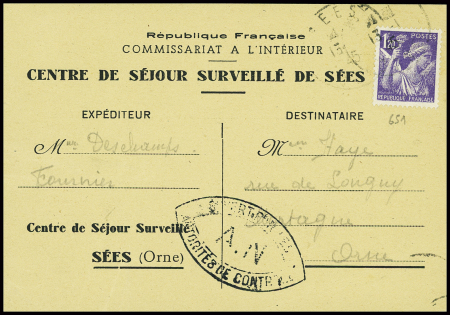 République Française
COMMISSARIAT A L'INTÉRIEUR
CENTRE DE SÉJOUR SURVEILLÉ DE SÉES
1F20 POSTES
RÉPUBLIQUE FRANÇAISE
651
EXPÉDITEUR
Mme Deschamps
Fournier
Centre de Séjour Surveillé
SÉES (Orne)
DESTINATAIRE
Mme Faye
rue de Longny
Mortagne
Orne
OUVERT PAR LES
A.N
AUTORITÉS DE CONTRÔLE